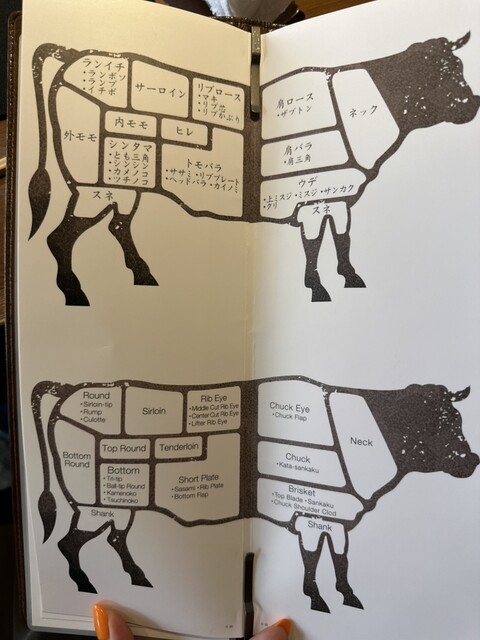 ランイチ
・ランボソ
・ランプ
・イチボ
サーロイン
リブロース
・マキ
・リブ芯
・リブかぶり
外モモ
内モモ
ヒレ
シンタマ
・とも三角
・シンシン
・カメノコ
・ツチノコ
トモバラ
・ササミ・リブプレート
・ヘッドバラ・カイノミ
スネ
肩ロース
・ザブトン
ネック
肩バラ
・肩三角
ウデ
・上ミスジ・ミスジ・サンカク
・クリ
スネ
Round
・Sirloin-tip
・Rump
・Culotte
Sirloin
Rib Eye
・Middle Cut Rib Eye
・Center Cut Rib Eye
・Lifter Rib Eye
Bottom
Round
Top Round
Tenderloin
Bottom
・Tri-tip
・Ball-tip Round
・Kamenoko
・Tsuchinoko
Short Plate
・Sasami・Rib Plate
・Bottom Flap
Shank
Chuck Eye
・Chuck Flap
Neck
Chuck
・Kata-sankaku
Brisket
・Top Blade・Sankaku
・Chuck Shoulder Clod
Shank